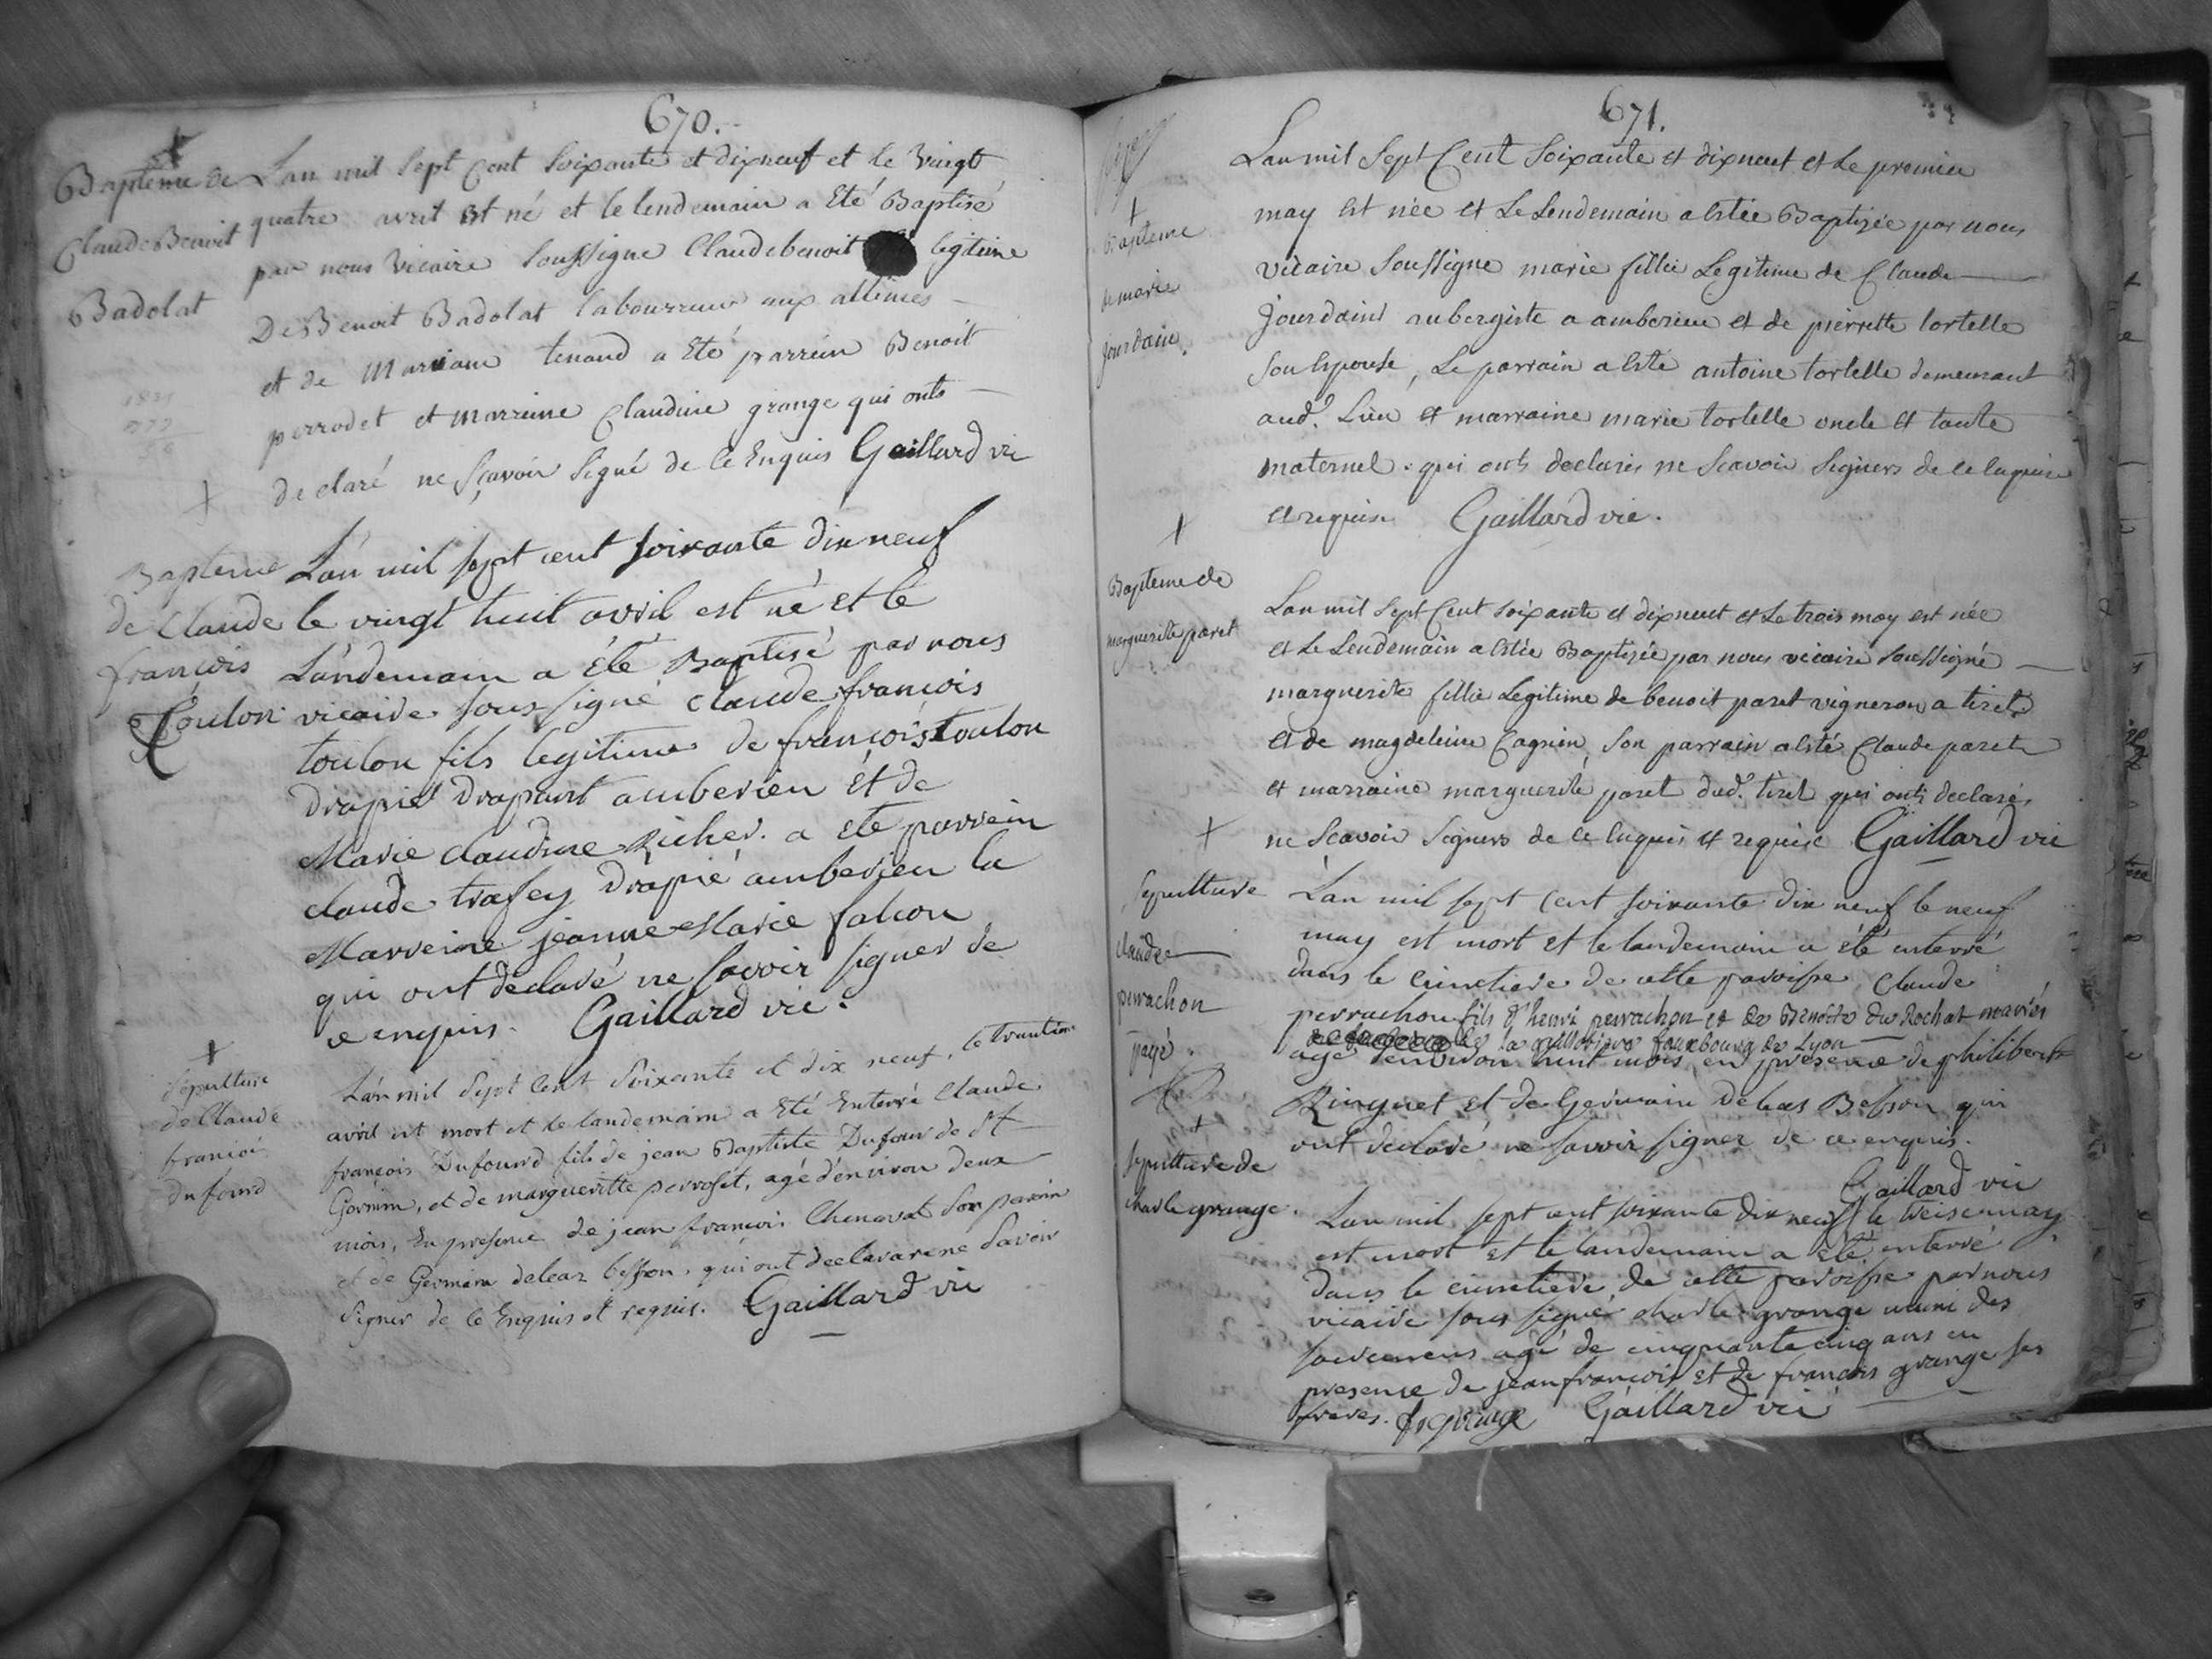 670.
Baptême de
Claude Benoit
Badolat
Lan mil Sept Cent Soixante et dixneuf et le Vingt
quatre avril est né et le lendemain a Eté Baptisé
par nous Vicaire Soussigne Claude benoit legitime
De Benoit Badolat labourreur aux allimes
et de Mariane tenand a Eté parrein Benoit
perrodet et marreine Claudine grange qui onts
declaré ne Sçavoir Signé de Ce Enquis Gaillard vic
Bapteme
de Claude
françois
Toulon
L'an mil sept cent soixante dix neuf
le vingt huit avril est né et le
Landemain a été Baptisé par nous
vicaire sous signé Claude françois
toulon fils legitime de françois toulon
drapié drapant amberieu et de
Marie Claudine Richer. a été parrein
claude trafey drapié amberieu la
Marreine jeanne Marie falcon
qui ont declaré ne savoir signer de
ce enquis. Gaillard vic.
Sepulture
de Claude
françois
dufourd
L'an mil Sept Cent Soixante et dix neuf, le trentime
avril est mort et le landemain a Eté Enterré Claude
françois Dufourd fils de jean Baptiste Dufour de St
Germin, et de margueritte perroset, agé d'environ deux
mois, En presence de jean françois Chenavat Son parrin
et de Germain deleaz besson, qui ont declararé né Savoir
Signer de Ce Enquis et requis. Gaillard vic
671.
Bapteme
de marie
jourdain.
Lan mil Sept Cent Soixante et dixneuf et Le premier
may Est née et Le Lendemain a Estée Baptizée par nous
vicaire Soussigne marie fillie Legitime de Claude
jourdaint aubergiste a amberieu et de pierrette tortelle
Son Epouse, Le parrain a Esté antoine tortelle demeurant
aud. Lieu et marraine marie tortelle oncle et tante
maternel. qui onts declarés ne Scavoir Signers de ce Enquis
et requis. Gaillard vic.
Bapteme de
marguerite paret
Lan mil Sept Cent Soixante et dixneuf et Le trois may est née
et Le Lendemain a Estée Baptizée par nous vicaire Soussigné
marguerite fillie Legitime de benoit paret vigneron a tiret
et de magdeleine Cagnin, Son parrain a Esté Claude paret
et marraine marguerite paret dud. tiret qui onts declarés
ne Scavoir Signers de ce Enquis et requise Gaillard vic
Sepulture
claude
perrachon
payé.
L'an mil sept Cent soixante dix neuf le neuf
may est mort et le landemain a été enterré
dans le cimetiere de cette paroisse Claude
perrachon fils d'henri perrachon et de Benoite du Rochat mariés
de la guillotiere fauxbourg de Lyon
agé denviron huit mois en presence de philibert
Ringuet et de Germain Deleas Besson qui
ont declaré ne savoir signer de ce enquis.
Gaillard vic
Sepulture de
charle grange.
L'an mil sept cent soixante dix neuf le treise may
est mort et le landemain a été enterré
dans le cimetiere de cette paroisse par nous
vicaire sous signé charle grange muni des
sacremens agé de cinquante cinq ans en
presence de jean françois et de francois grange ses
freres. Gaillard vic